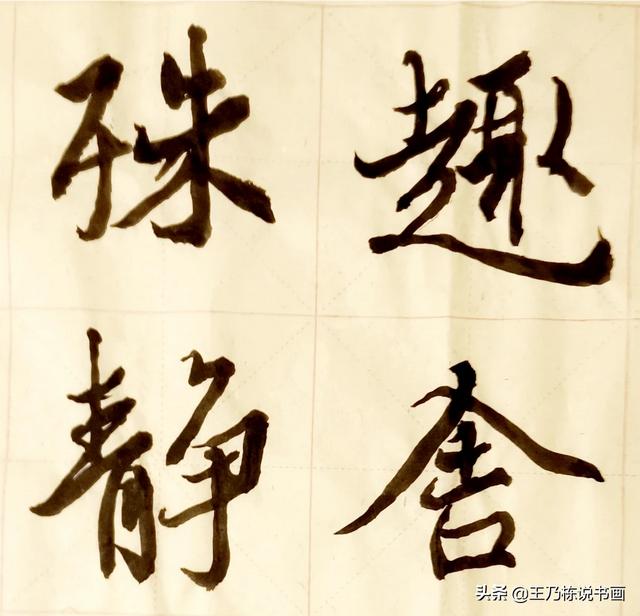 趣舍
殊静
头条 @王乃栋说书画